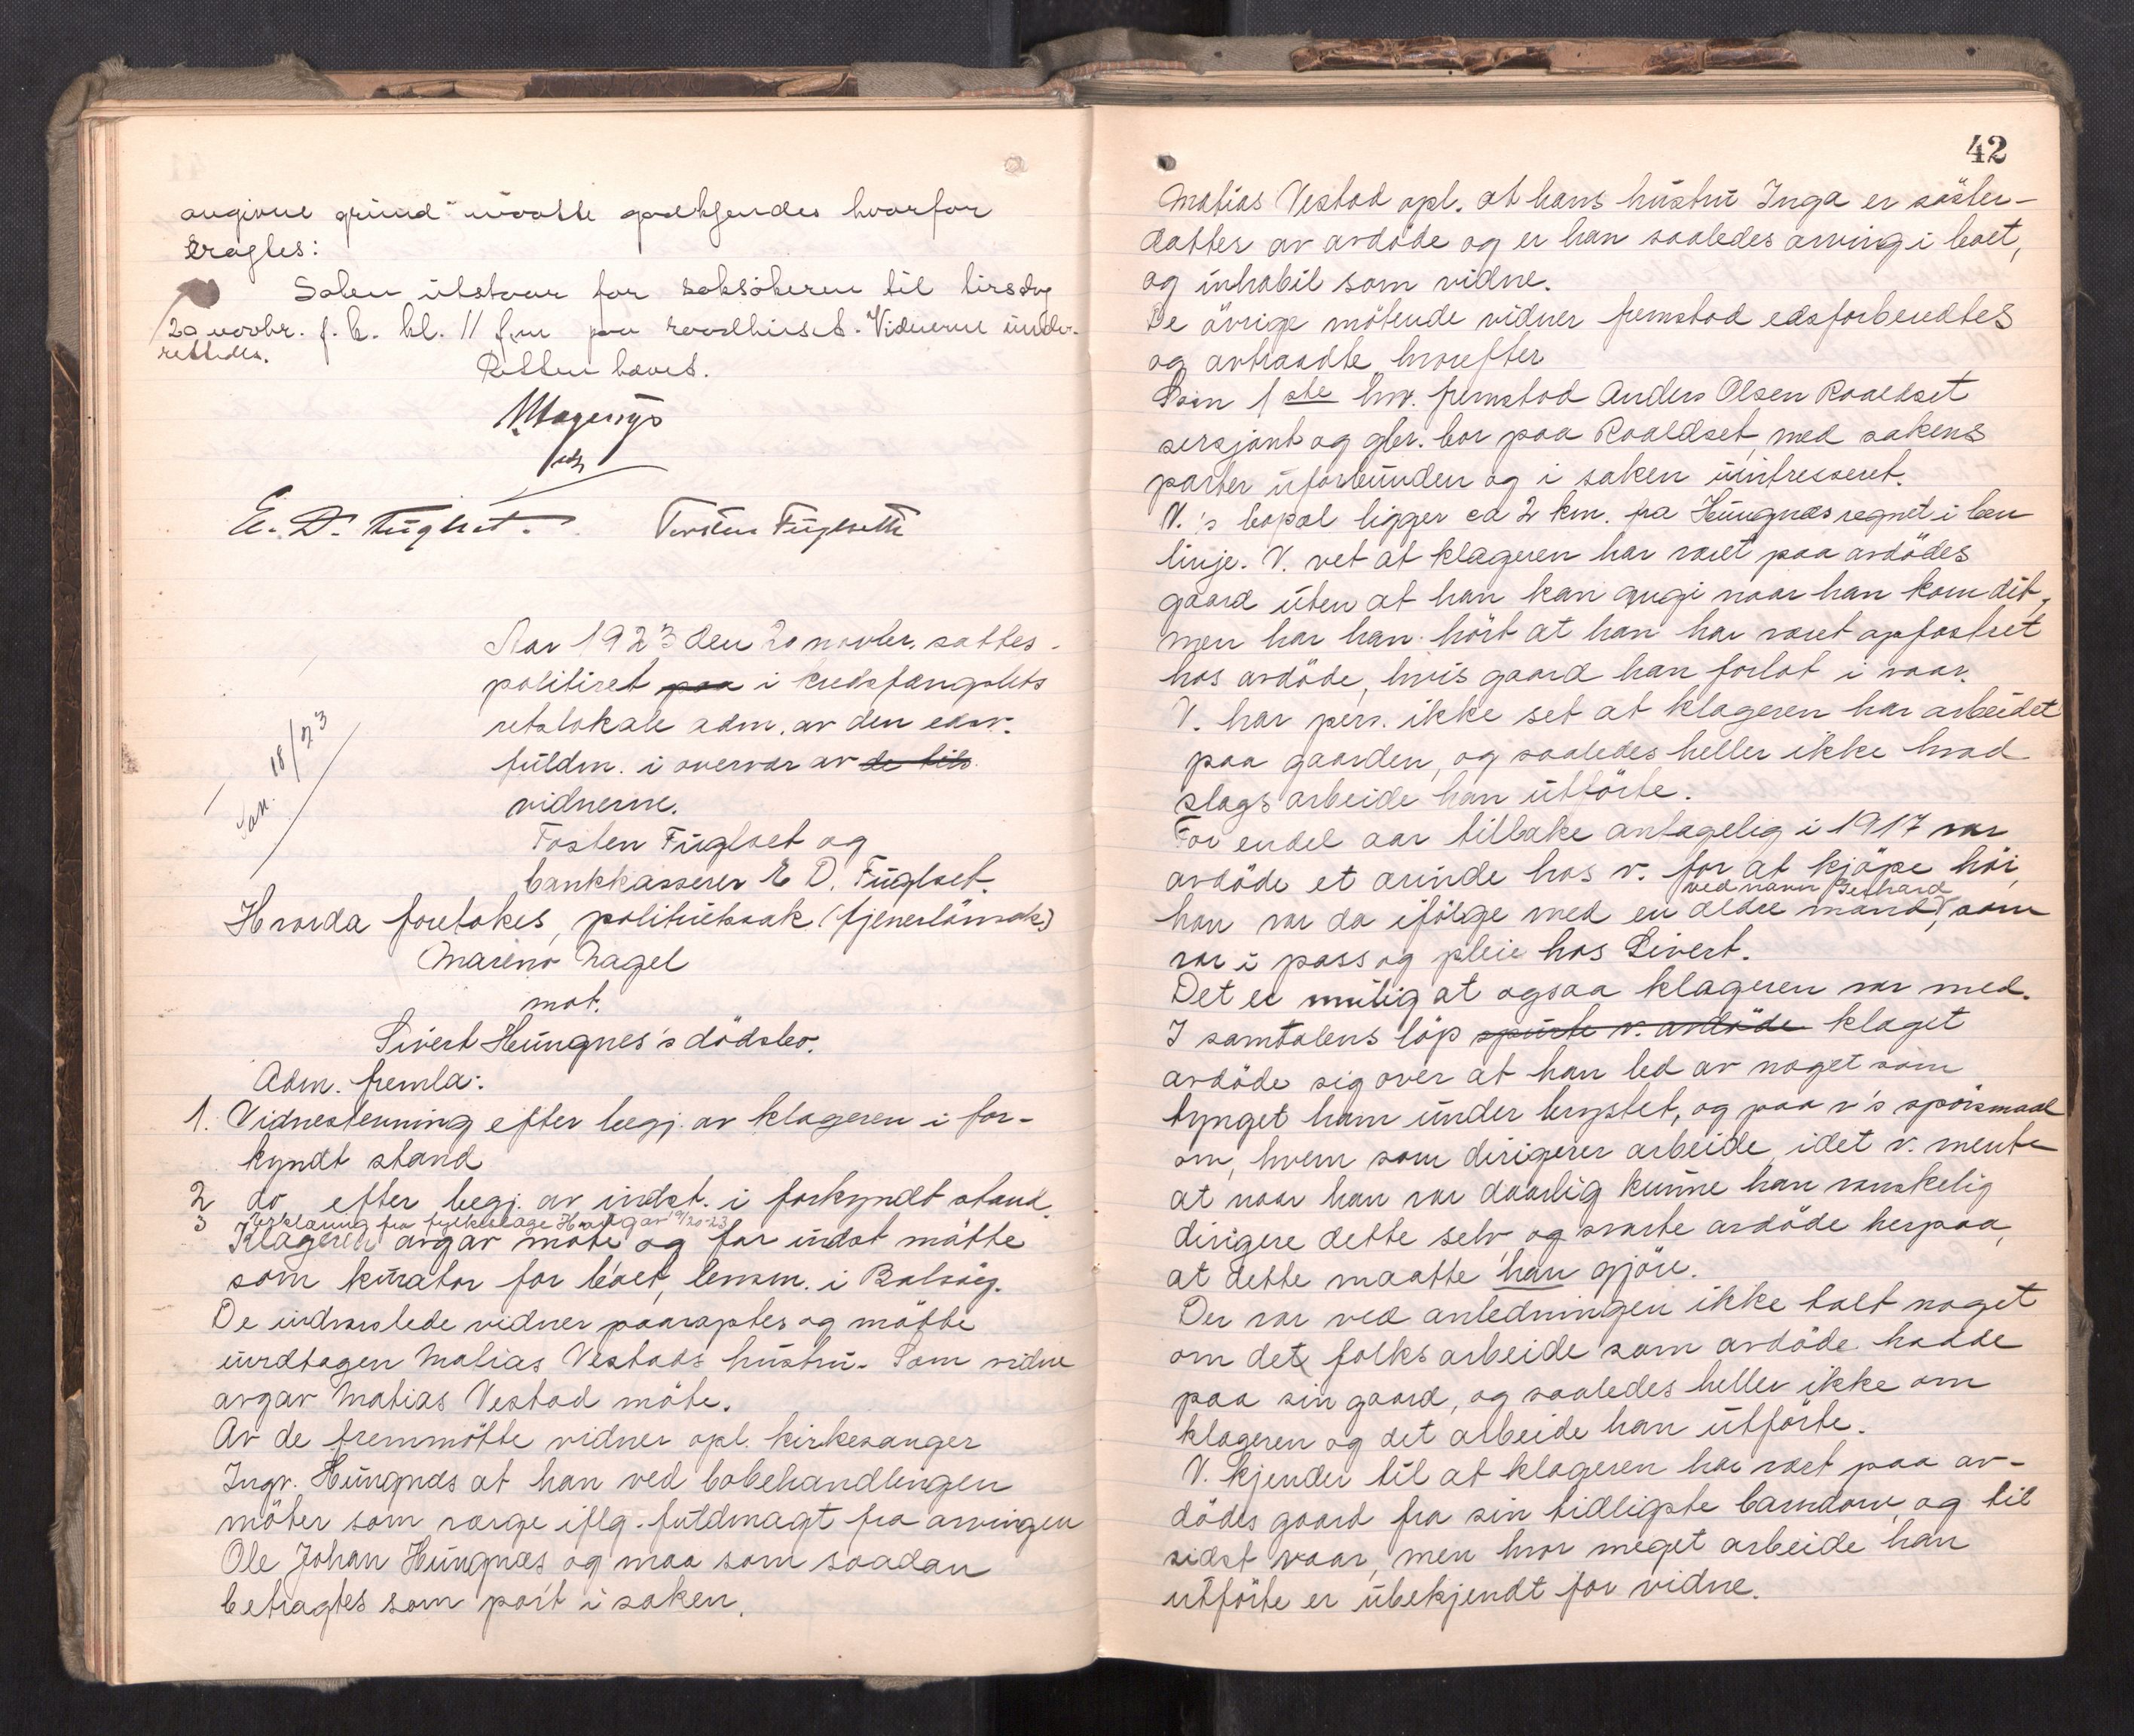 angivne grund maatte godkjendes hvorfor
eragtes:
Saken utstaar for saksökeren til tirsdag
20 novbr. f. k. kl. 11 f.m paa raadhuset. Vidnerne under-
rettedes.
Retten hævet.
E. D. Fuglset. Torsten Fuglseth
Aar 1923 den 20 novbr. sattes
politiret paa i kredsfængslets
retslokale adm. av den edsv.
fuldm. i overvær av de tils.
vidnerne.
Tosten Fuglset og
bankkasserer E D. Fuglset.
Sak. 18/23
Hvorda foretokes, politiretssak (tjenerlönsak)
Mareno Nagel
mot.
Sivert Hungnes's dödsbo.
Adm. fremla:
1. Vidnestevning efter begj. av klageren i for-
kyndt stand
2 do efter begj. av indst. i forkyndt stand.
3 Erklæring fra fylkeslæge
Klageren avgav möte og for indst mötte
som kurator for boet, lensm. i Bolsöy.
De indvarslede vidner paaraptes og mötte
undtagen Matias Vestads hustru. Som vidne
avgav Matias Vestad möte.
Av de fremmötte vidner opl. kirkesanger
Ingv. Hungnæs at han ved bobehandlingen
möter som værge iflg. fuldmagt fra arvingen
Ole Johan Hungnæs og maa som saadan
betragtes som part i saken.
42
Matias Vestad opl. at hans hustru Inga er söster-
datter av avdöde og er han saaledes arving i boet,
og inhabil som vidne.
De övrige mötende vidner fremstod edsforberedtes
og avtraadte hvorefter
Som 1ste hv. fremstod Anders Olsen Roaldset
sersjant og gbr. bor paa Roaldset, med sakens
parter uforbunden og i saken uintresseret.
V.'s bopæl ligger ca 2 km. fra Hungnæs regnet i ben
linje. V. vet at klageren har været paa avdödes
gaard uten at han kan angi naar han kom dit,
men har han hört at han har været opfostret
hos avdöde, hvis gaard han forlot i vaar.
V. har pers. ikke set at klageren har arbeidet
paa gaarden, og saaledes heller ikke hvad
slags arbeide han utförte.
For endel aar tilbake antagelig i 1917 var
avdöde et ærinde hos v. for at kjöpe höi,
ved navn Gerhard
han var da ifölge med en ældre mand, som
var i pass og pleie hos Sivert.
Det er mulig at ogsaa klageren var med.
I samtalens löp spurte v. avdöde klaget
avdöde sig over at han led av noget som
tynget ham under brystet, og paa v's spörsmaal
om, hvem som dirigerer arbeide, idet v. mente
at naar han var daarlig kunne han vanskelig
dirigere dette selv, og svarte avdöde herpaa,
at dette maatte han gjöre.
Der var ved anledningen ikke talt noget
om det folks arbeide som avdöde hadde
paa sin gaard, og saaledes heller ikke om
klageren og det arbeide han utförte.
V. kjender til at klageren har vært paa av-
dödes gaard fra sin tidligste barndom, og til
sidst vaar, men hvor meget arbeide han
utförte er ubekjendt for vidne.